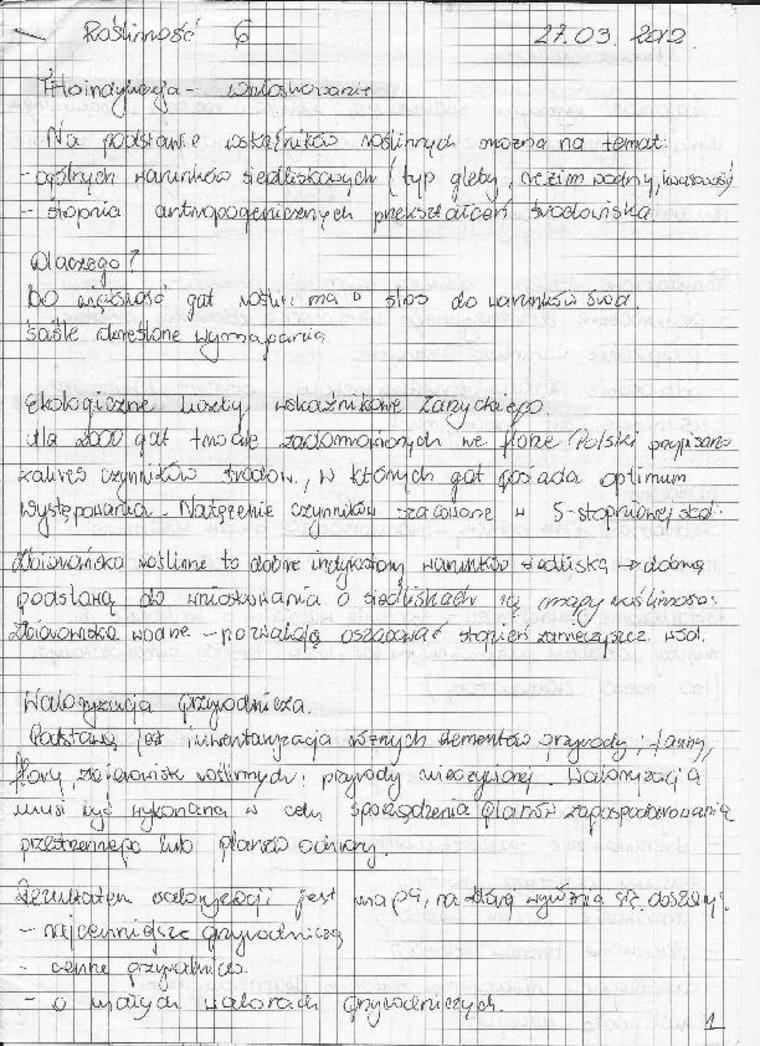 Roślinność 6 27.03.2012
Fitoindykacja - wnioskowanie
Na podstawie wskaźników roślinnych można na temat:
- ogólnych warunków siedliskowych (typ gleby, reżim wodny, kwasowość)
- stopnia antropogenicznych przekształceń środowiska
Dlaczego?
BO większość gat roślin ma w stos do warunków środ.
ściśle określone wymagania
Ekologiczne liczby wskaźnikowe Zarzyckiego.
dla 2000 gat trwale zadomowionych we florze Polski przypisano
zakres czynników środow., w których gat posiada optimum
występowania. Natężenie czynników szacowane w 5-stopniowej skal.
Zbiorowiska roślinne to dobre indykatory warunków siedliska → dobrą
podstawą do wnioskowania o siedliskach są mapy roślinności
Zbiorowiska wodne - pozwalają oszacować stopień zanieczyszcz. wód.
Waloryzacja przyrodnicza.
Podstawą jest inwentaryzacja różnych elementów przyrody; fauny,
flory, zbiorowisk roślinnych i przyrody nieożywionej. Waloryzacja
musi być wykonana w celu sporządzenia planów zagospodarowania
przestrzennego lub planów ochrony.
Rezultatem waloryzacji jest mapa, na której wyróżnia się obszary:
- najcenniejsze przyrodniczo
- cenne przyrodniczo.
- o małych walorach przyrodniczych.
1